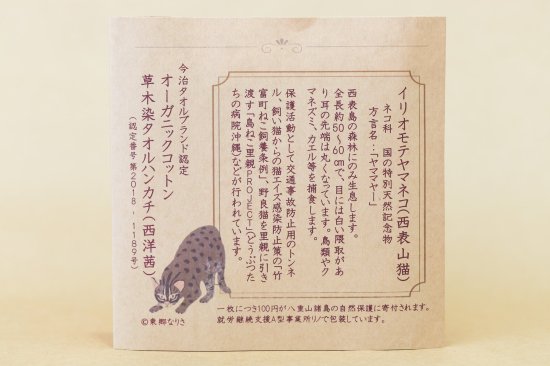 イリオモテヤマネコ(西表山猫)
ネコ科　国の特別天然記念物
方言名:「ヤママヤー」
西表島の森林にのみ生息します。
全長約50~60㎝で、目には白い隈取があ
り耳の先端は丸くなっています。鳥類やク
マネズミ、カエル等を捕食します。
保護活動として交通事故防止用のトンネ
ル、飼い猫からの猫エイズ感染防止策の「竹
富町ねこ飼養条例」、野良猫を里親に引き
渡す「島ねこ里親PROJECT」(どうぶつた
ちの病院沖縄)などが行われています。
今治タオルブランド認定
オーガニックコットン
草木染タオルハンカチ(西洋茜)
(認定番号第2018-1189号)
一枚につき100円が八重山諸島の自然保護に寄付されます。
就労継続支援A型事業所リノで包装しています。
©東郷なりさ